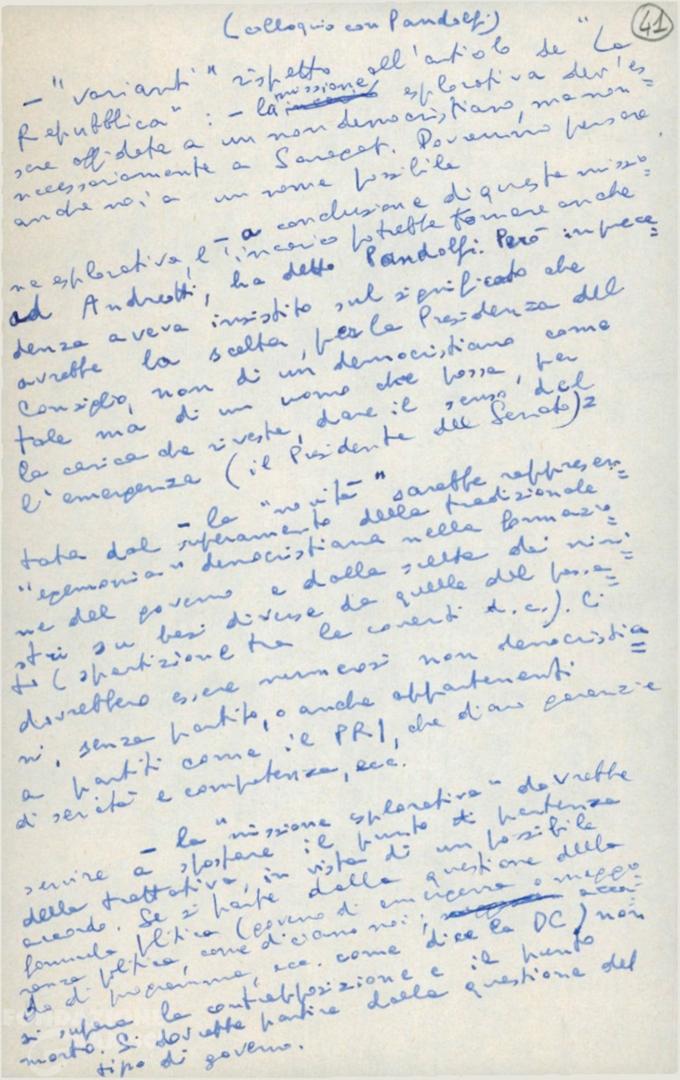 (colloquio con Pandolfi)
41
- "varianti" rispetto all'articolo de "La
Repubblica": - la missione esplorativa dev'es=
sere affidata a un non democristiano, ma non
necessariamente a Saragat. Dovremmo pensare
anche noi a un nome possibile.
- a conclusione di questa missio=
ne esplorativa, l'incarico potrebbe tornare anche
ad Andreotti, ha detto Pandolfi. Però in prece=
denza aveva insistito sul significato che
avrebbe la scelta, per la Presidenza del
Consiglio, non di un democristiano come
tale ma di un uomo che possa, per
la carica che riveste, dare il senso del=
l'emergenza (il Presidente del Senato)
- la "novità" sarebbe rappresen=
tata dal superamento della tradizionale
"egemonia" democristiana nella formazio=
ne del governo e dalla scelta dei mini=
stri su basi diverse da quelle del passa=
to (spartizione tra le correnti d.c.). Ci
dovrebbero essere numerosi non democristia=
ni, senza partito, o anche appartenenti
a partiti come il PRI, che diano garanzie
di serietà e competenza, ecc.
- la "missione esplorativa" dovrebbe
servire a spostare il punto di partenza
della trattativa, in vista di un possibile
accordo. Se si parte dalla questione della
formula politica (governo di emergenza o maggio=
ranza politica, come diciamo noi; accor=
do di programma, ecc. come dice la DC) non
si supera la contrapposizione e il punto
morto. Si dovrebbe partire dalla questione del
tipo di governo.